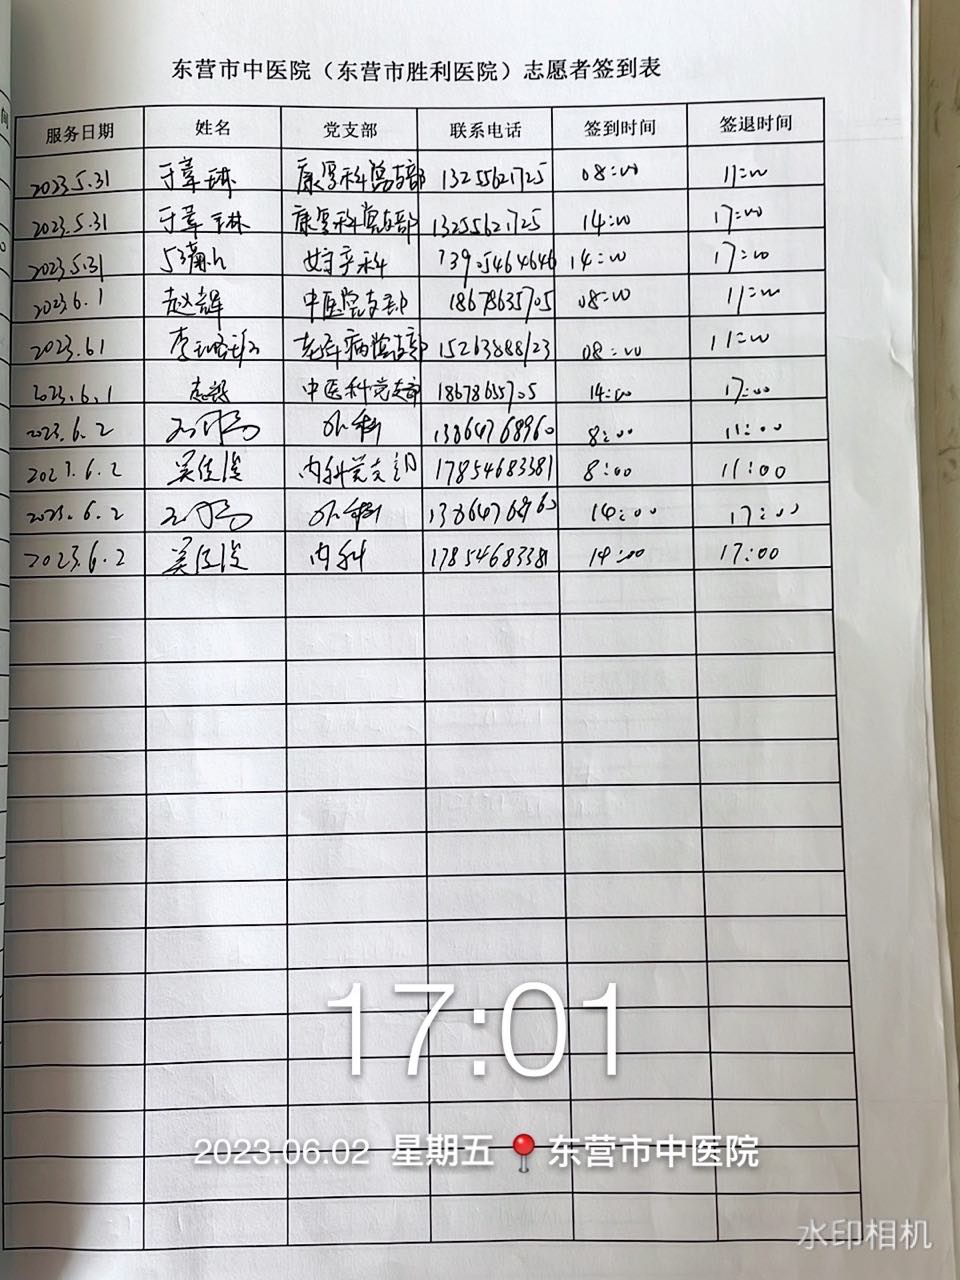 东营市中医院（东营市胜利医院）志愿者签到表
间
服务日期 姓名 党支部 联系电话 签到时间 签退时间
2023.5.31 康复科党支部 13255621725 08:00 11:00
2023.5.31 康复科党支部 13255621725 14:00 17:00
2023.5.31 妇产科 13905464646 14:00 17:00
2023.6.1 赵辉 中医党支部 18678635705 08:00 11:00
2023.6.1 老年病党支部 15263888123 08:00 11:00
2023.6.1 中医科党支部 18678635705 14:00 17:00
2023.6.2 外科 13864768960 8:00 11:00
2023.6.2 内科党支部 17854683381 8:00 11:00
2023.6.2 外科 13864768960 14:00 17:00
2023.6.2 内科 17854683381 14:00 17:00
17:01
2023.06.02 星期五 东营市中医院
水印相机